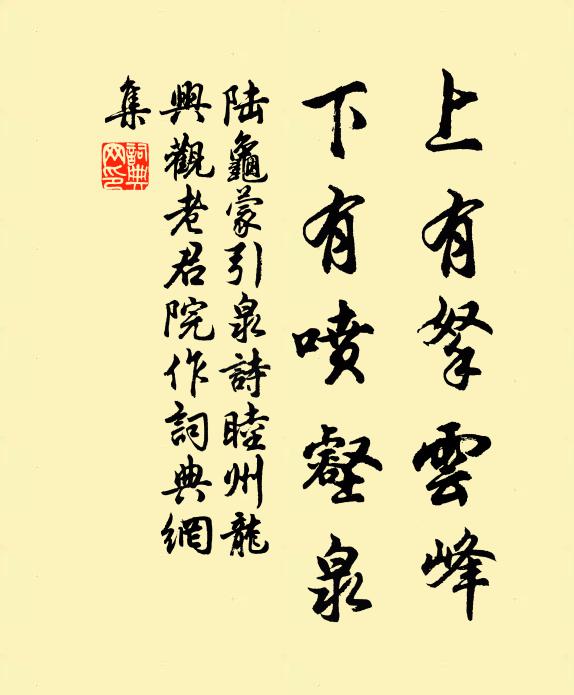 上有拏雲峰
下有噴壑泉
陸龜蒙引泉詩睦州龍
興觀老君院作詞典網
集
詞典網印